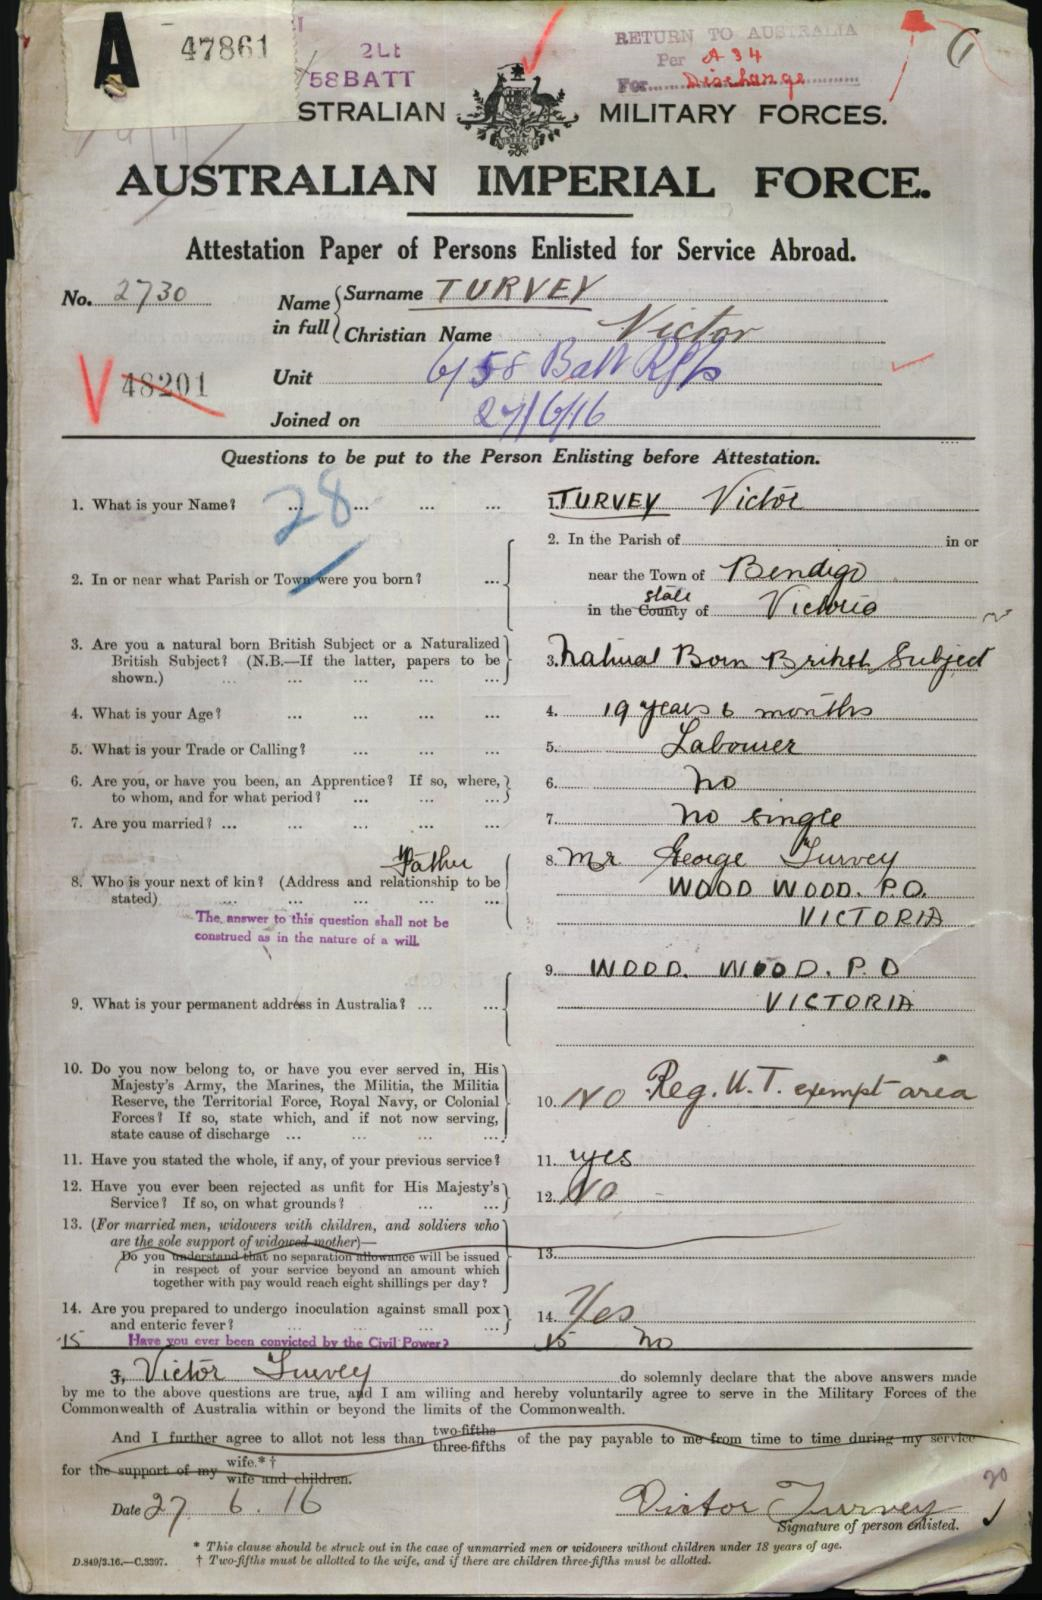 A 47861
2Lt
58 BATT
RETURN TO AUSTRALIA
Per A 34
For Discharge
STRALIAN MILITARY FORCES.
AUSTRALIAN IMPERIAL FORCE.
Attestation Paper of Persons Enlisted for Service Abroad.
No. 2730 Name in full Surname TURVEY
Christian Name Victor
V 48201
Unit 6/58 Batt Rfts
Joined on 27/6/16
Questions to be put to the Person Enlisting before Attestation.
28
1. What is your Name? ... ... ... ... 1. TURVEY Victor
2. In or near what Parish or Town were you born? ... 2. In the Parish of in or
near the Town of Bendigo
in the County state of Victoria
3. Are you a natural born British Subject or a Naturalized
British Subject? (N.B.—If the latter, papers to be
shown.) ... ... ... ... 3. Natural Born British Subject
4. What is your Age? ... ... ... 4. 19 years 6 months
5. What is your Trade or Calling? ... ... ... 5. Labourer
6. Are you, or have you been, an Apprentice? If so, where,
to whom, and for what period? ... ... ... 6. No
7. Are you married? ... ... ... ... 7. No single
Father
8. Who is your next of kin? (Address and relationship to be
stated) ... ... ... ... 8. Mr George Turvey
WOOD WOOD. P.O.
VICTORIA
The answer to this question shall not be
construed as in the nature of a will.
9. What is your permanent address in Australia? ... ... 9. WOOD. WOOD. P.O
VICTORIA
10. Do you now belong to, or have you ever served in, His
Majesty's Army, the Marines, the Militia, the Militia
Reserve, the Territorial Force, Royal Navy, or Colonial
Forces? If so, state which, and if not now serving,
state cause of discharge ... ... ... ... 10. NO Reg. U.T. exempt area
11. Have you stated the whole, if any, of your previous service? 11. yes
12. Have you ever been rejected as unfit for His Majesty's
Service? If so, on what grounds? ... ... 12. NO
13. (For married men, widowers with children, and soldiers who
are the sole support of widowed mother)—
Do you understand that no separation allowance will be issued
in respect of your service beyond an amount which
together with pay would reach eight shillings per day? 13.
14. Are you prepared to undergo inoculation against small pox
and enteric fever? ... ... ... 14. Yes
15 Have you ever been convicted by the Civil Power? 15 No
I, Victor Turvey do solemnly declare that the above answers made
by me to the above questions are true, and I am willing and hereby voluntarily agree to serve in the Military Forces of the
Commonwealth of Australia within or beyond the limits of the Commonwealth.
And I further agree to allot not less than two-fifths three-fifths of the pay payable to me from time to time during my service
for the support of my wife.*† wife and children.
20
Date 27. 6. 16 Victor Turvey
Signature of person enlisted.
* This clause should be struck out in the case of unmarried men or widowers without children under 18 years of age.
D.849/3.16.—C.3397. † Two-fifths must be allotted to the wife, and if there are children three-fifths must be allotted.